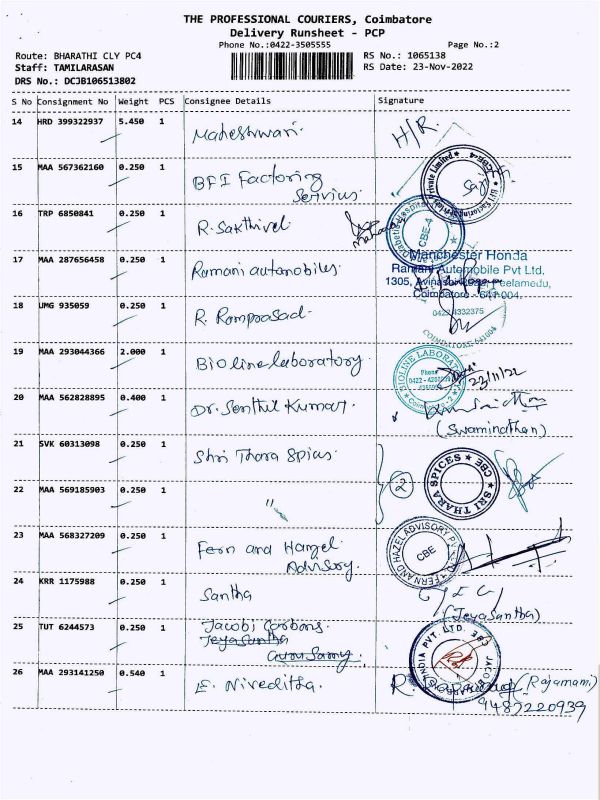 THE PROFESSIONAL COURIERS, Coimbatore
Delivery Runsheet - PCP
Phone No.:0422-3505555
Page No.:2
Route: BHARATHI CLY PC4
RS No.: 1065138
Staff: TAMILARASAN
RS Date: 23-Nov-2022
DRS No.: DCJB106513802
S No Consignment No Weight PCS Consignee Details Signature
14 HRD 399322937 5.450 1 Maheshwari H/R.
15 MAA 567362160 0.250 1 BFI Factoring
Servius
16 TRP 6850841 0.250 1 R. Sakthivel
CBE-4
17 MAA 287656458 0.250 1 Ramani automobiles
Manchester Honda
Ramani Automobile Pvt Ltd.
1305, Avinashi Road, Peelamedu,
Coimbatore - 641 004.
18 UMG 935059 0.250 1 R. Ramprasad
0422 4332375
COIMBATORE 641004
19 MAA 293044366 2.000 1 Bioline laboratory
BIOLINE LABORATORY
Phone
23/11/22
20 MAA 562828895 0.400 1 Dr. Senthil Kumar.
(Swaminathan)
21 SVK 60313098 0.250 1 Shri Thara Spius
2
SRI THARA SPICES CBE
22 MAA 569185903 0.250 1 "
23 MAA 568327209 0.250 1 Fern and Hazel
Advisory.
FERN AND HAZEL ADVISORY CBE
24 KRR 1175988 0.250 1 Santha
(Jeyasantha)
25 TUT 6244573 0.250 1 Jacobi Carbons.
Jeyasantha
Gurusamy.
INDIA PVT. LTD. 383 JACOBI
26 MAA 293141250 0.540 1 E. Niveditha.
(Rajamani)
9487220939